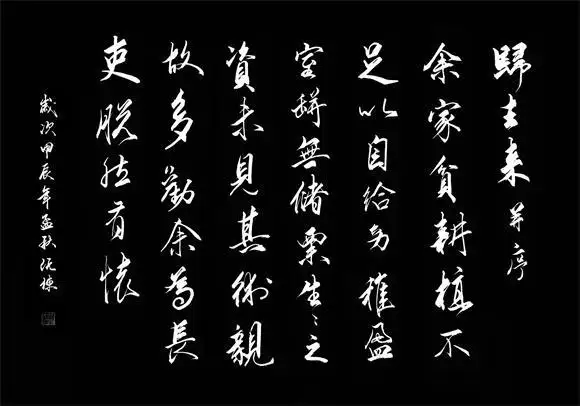 歸去来并序
余家貧耕植不
足以自給幼稚盈
室缾無儲粟生々之
資未見其術親
故多勸余為長
吏脱然有懷
歲次甲辰年孟秋